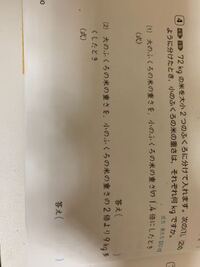 4 72kgの米を大小2つのふくろに分けて入れます。次の(1)、(2)の
ように分けたとき、小のふくろの米の重さは、それぞれ何kgですか。
(1) 大のふくろの米の重さを、小のふくろの米の重さの1.4倍にしたとき
(式)
答え( )
(2) 大のふくろの米の重さを、小のふくろの米の重さの2倍より9kg多
くしたとき
(式)
答え( )